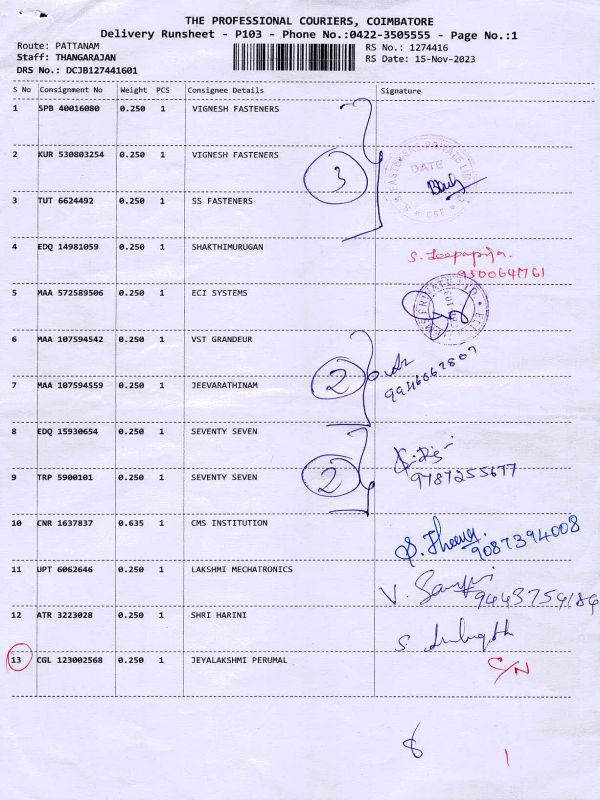 THE PROFESSIONAL COURIERS, COIMBATORE
Delivery Runsheet - P103 - Phone No.:0422-3505555 - Page No.:1
Route: PATTANAM RS No.: 1274416
Staff: THANGARAJAN RS Date: 15-Nov-2023
DRS No.: DCJB127441601
S No Consignment No Weight PCS Consignee Details Signature
1 SPB 40016080 0.250 1 VIGNESH FASTENERS
2 KUR 530803254 0.250 1 VIGNESH FASTENERS
3
DATE
3 TUT 6624492 0.250 1 SS FASTENERS
4 EDQ 14981059 0.250 1 SHAKTHIMURUGAN
9500647761
5 MAA 572589506 0.250 1 ECI SYSTEMS
6 MAA 107594542 0.250 1 VST GRANDEUR
2
7 MAA 107594559 0.250 1 JEEVARATHINAM
8 EDQ 15930654 0.250 1 SEVENTY SEVEN
2
9 TRP 5900101 0.250 1 SEVENTY SEVEN 9787255677
10 CNR 1637837 0.635 1 CMS INSTITUTION
9087394008
11 UPT 6062646 0.250 1 LAKSHMI MECHATRONICS
12 ATR 3223028 0.250 1 SHRI HARINI
13 CGL 123002568 0.250 1 JEYALAKSHMI PERUMAL C/N
8 1